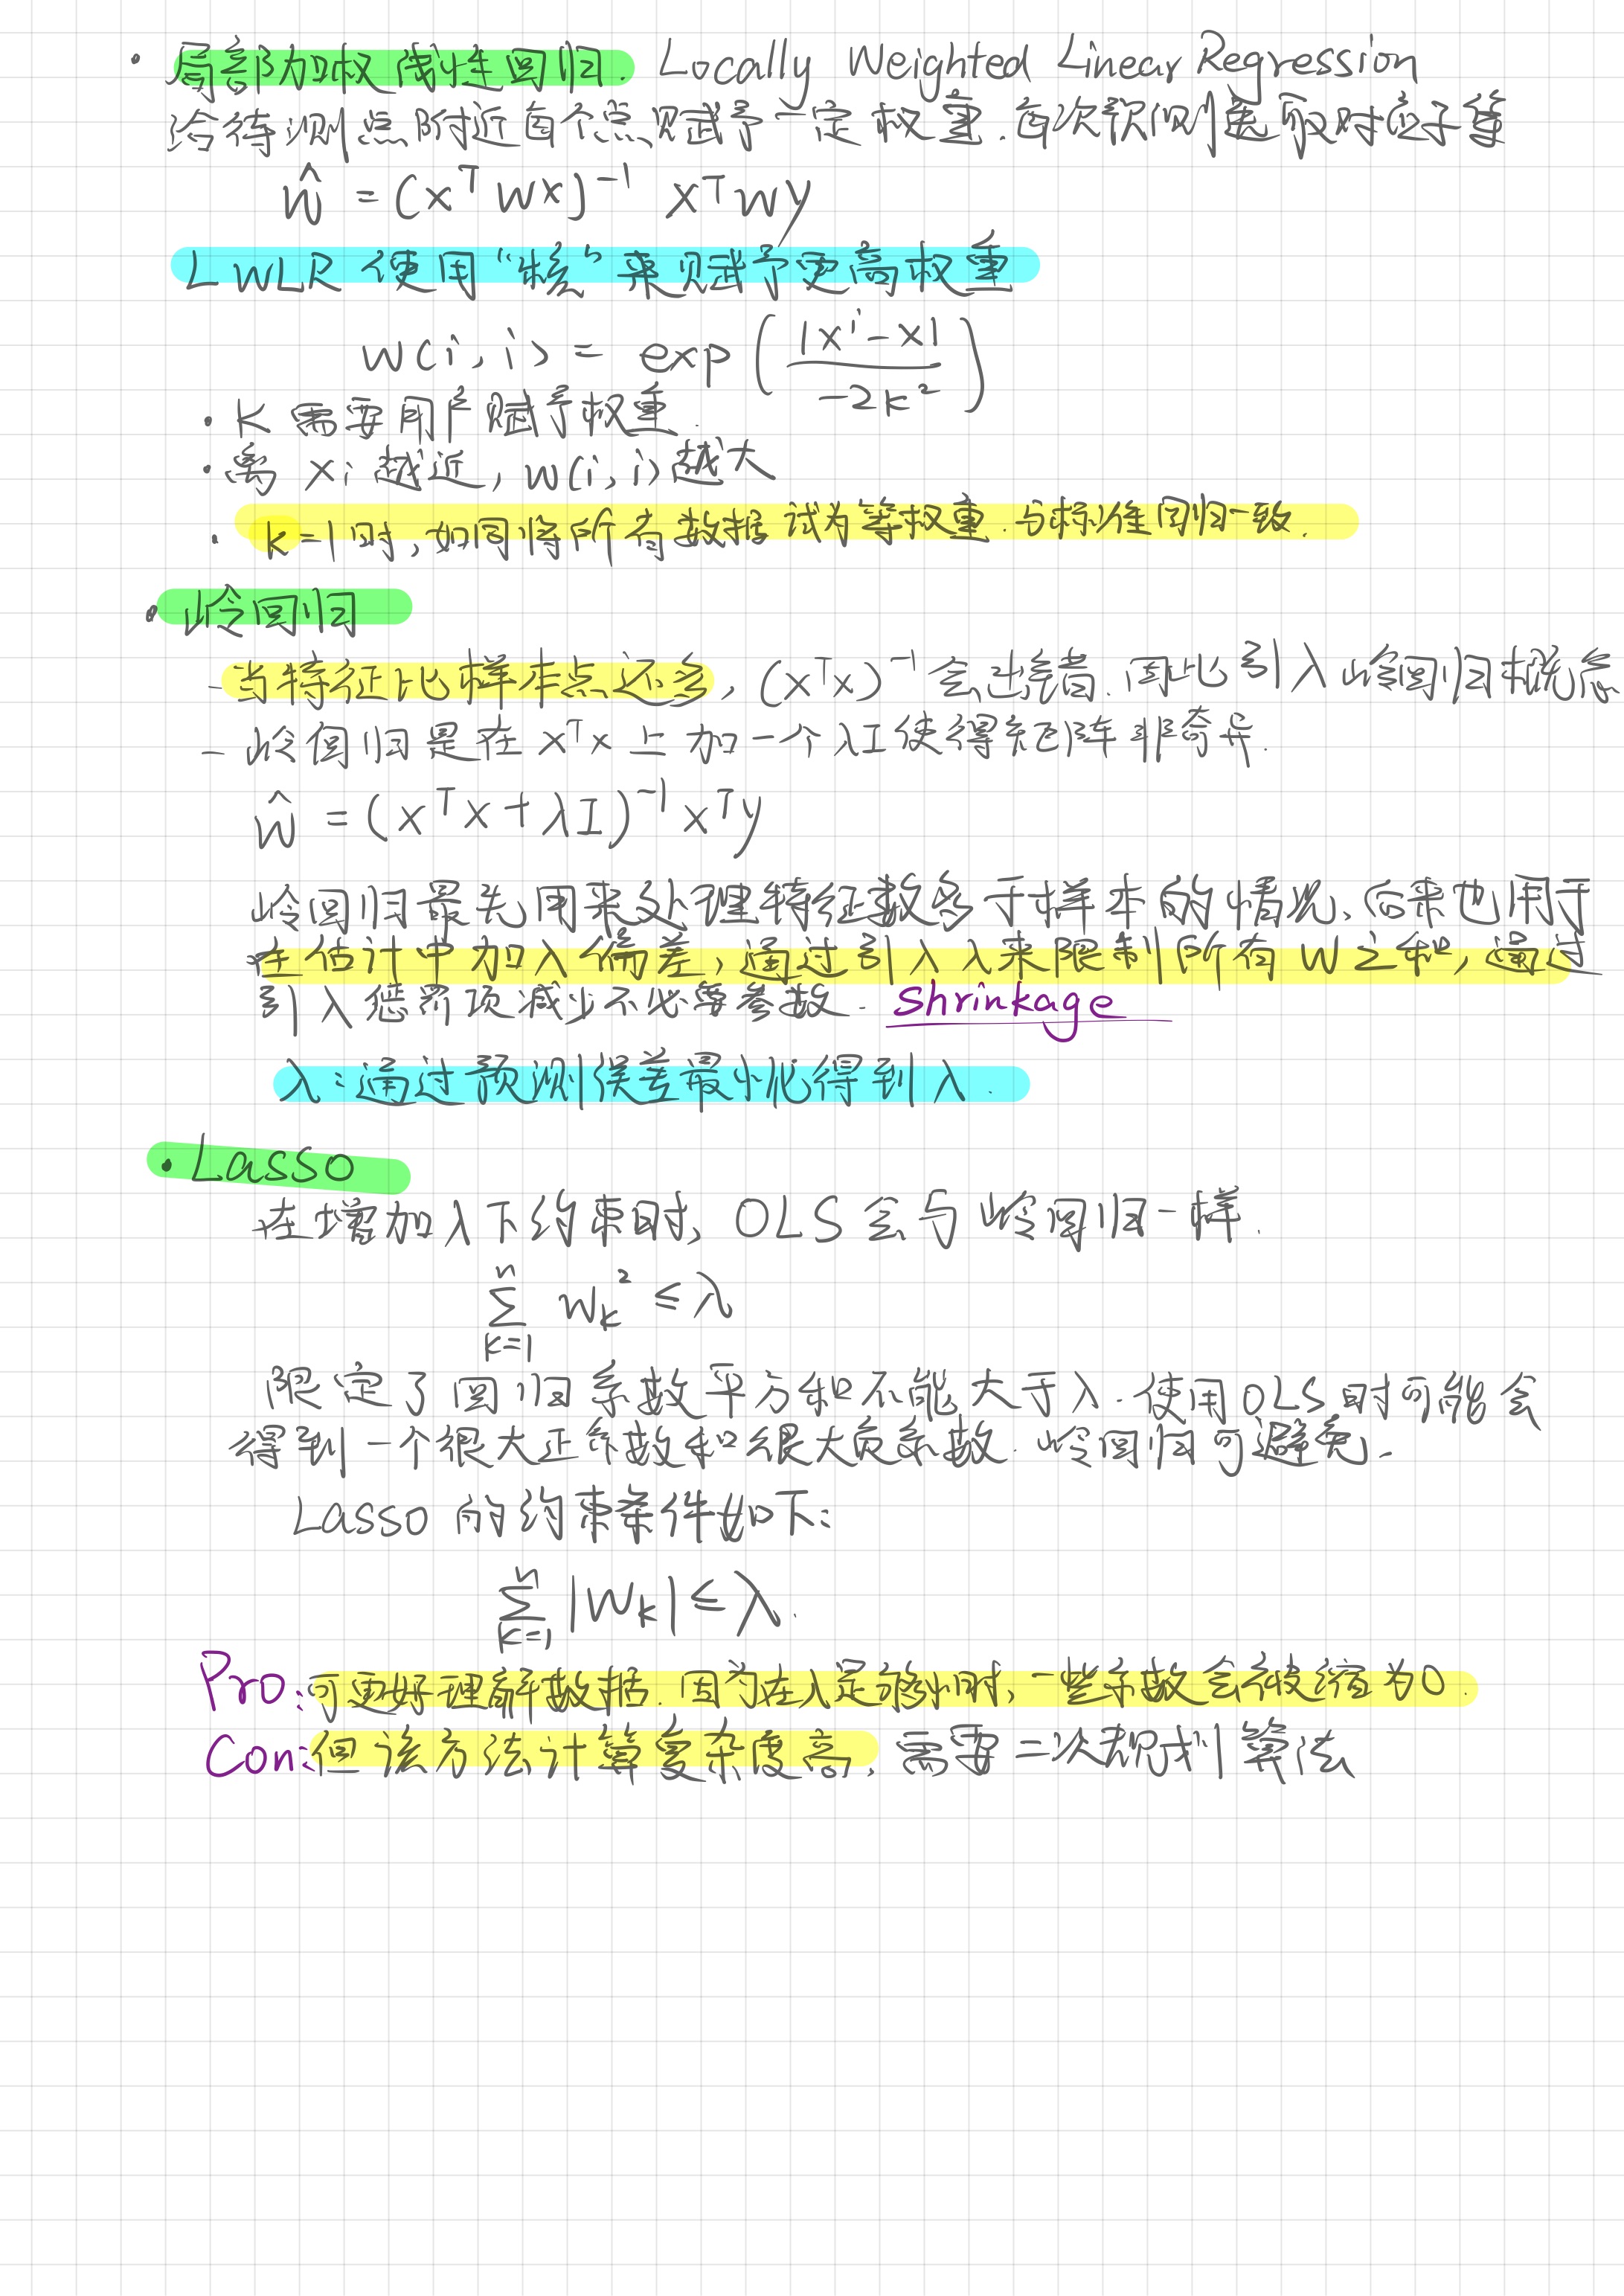 · 局部加权线性回归. Locally Weighted Linear Regression
给待测点附近每个点赋予一定权重.每次预测选取对应子集
ŵ = (xᵀ w x)⁻¹ xᵀ w y
LWLR 使用“核”来赋予更高权重
w(i, i) = exp( |xⁱ - x| / -2k² )
· K 需要用户赋予权重.
· 离 xi 越近, w(i, i) 越大
· k=1时, 如同将所有数据试为等权重.与标准回归一致.
· 岭回归
- 当特征比样本点还多, (xᵀx)⁻¹ 会出错. 因此引入岭回归概念
- 岭回归是在 xᵀx 上加一个λI使得矩阵非奇异.
ŵ = (xᵀx + λI)⁻¹ xᵀy
岭回归最先用来处理特征数多于样本的情况、后来也用于
在估计中加入偏差, 通过引入λ来限制所有 W 之和, 通过
引入惩罚项减少不必要参数. Shrinkage
λ: 通过预测误差最小化得到λ.
· Lasso
在增加入下约束时, OLS 会与岭回归一样.
∑ₖ₌₁ⁿ wₖ² ≤ λ
限定了回归系数平方和不能大于λ.使用OLS时可能会
得到一个很大正系数和很大负系数.岭回归可避免.
Lasso 的约束条件如下:
∑ₖ₌₁ⁿ |wₖ| ≤ λ.
Pro: 可更好理解数据.因为在λ足够小时, 一些系数会被缩为0.
Con: 但该方法计算复杂度高, 需要二次规划算法